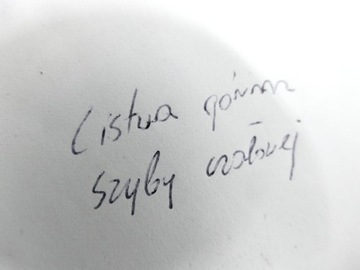 Listwa górna
szyby czołowej